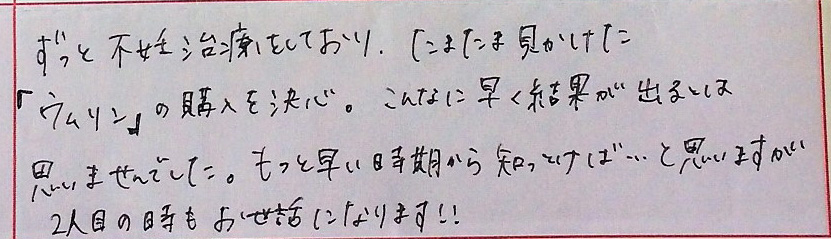 ずっと不妊治療をしており、たまたま見かけた
「ウムリン」の購入を決心。こんなに早く結果が出るとは
思いませんでした。もっと早い時期から知っとけば…と思いますが
2人目の時もお世話になります!!